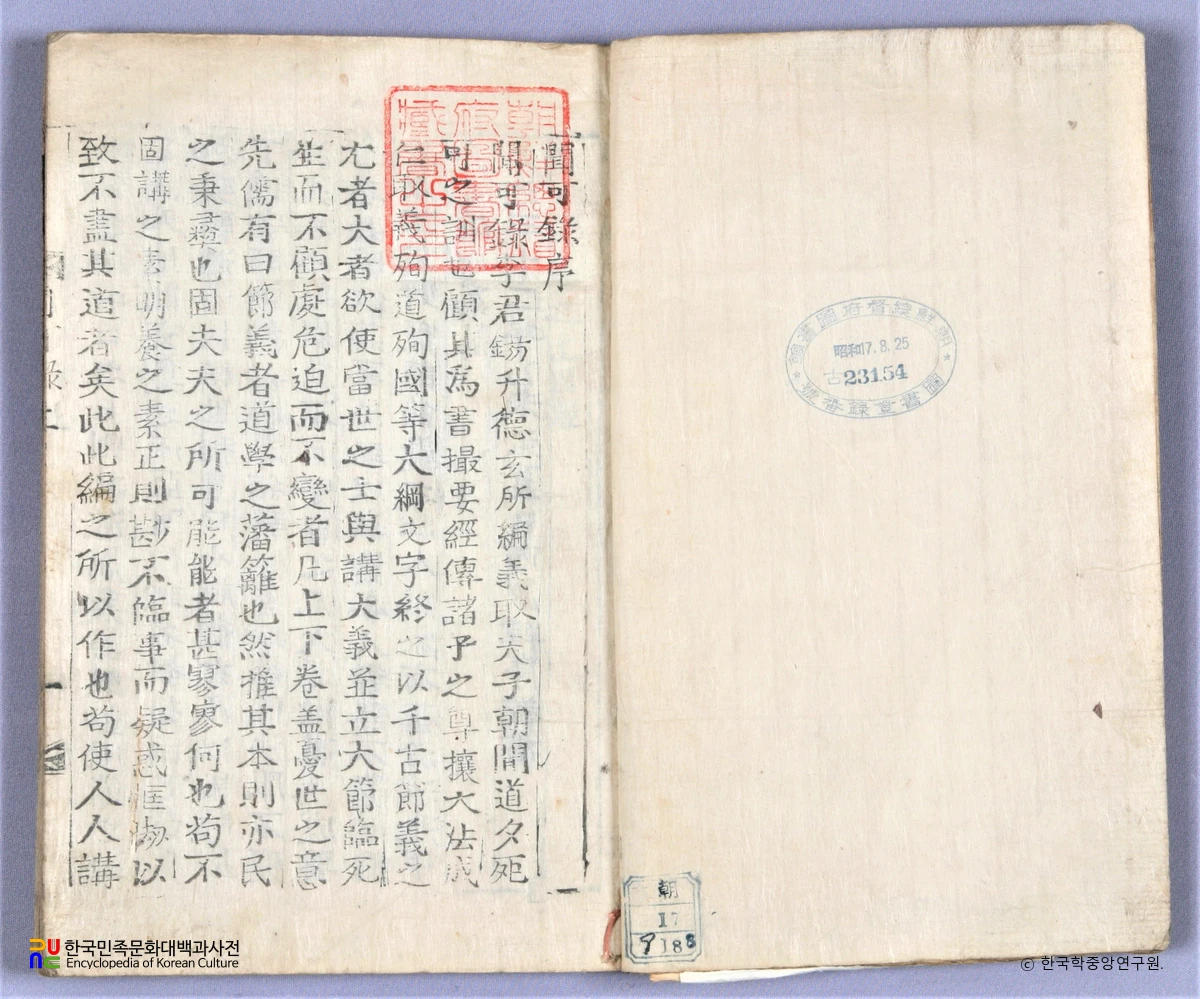 聞可錄序
聞可錄李君錫升德玄所編義取夫子朝聞道夕死
可之訓也顧其爲書撮要經傳諸予之尊攘大法成
仁取義殉道殉國等大綱文字終之以千古節義之
尤者大者欲使當世之士與講大義並立大節臨死
生而不顧處危迫而不變者凡上下卷盖憂世之意
先儒有曰節義者道學之藩籬也然推其本則亦民
之秉彛也固夫夫之所可能能者甚寥寥何也苟不
固講之素明養之素正則尠不臨事而疑惑恇㥘以
致不盡其道者矣此此編之所以作也苟使人人講
朝鮮總督府圖書館
昭和7.8.25
古23154
圖書登錄番號
朝
17
188
한국민족문화대백과사전
Encyclopedia of Korean Culture
© 한국학중앙연구원.